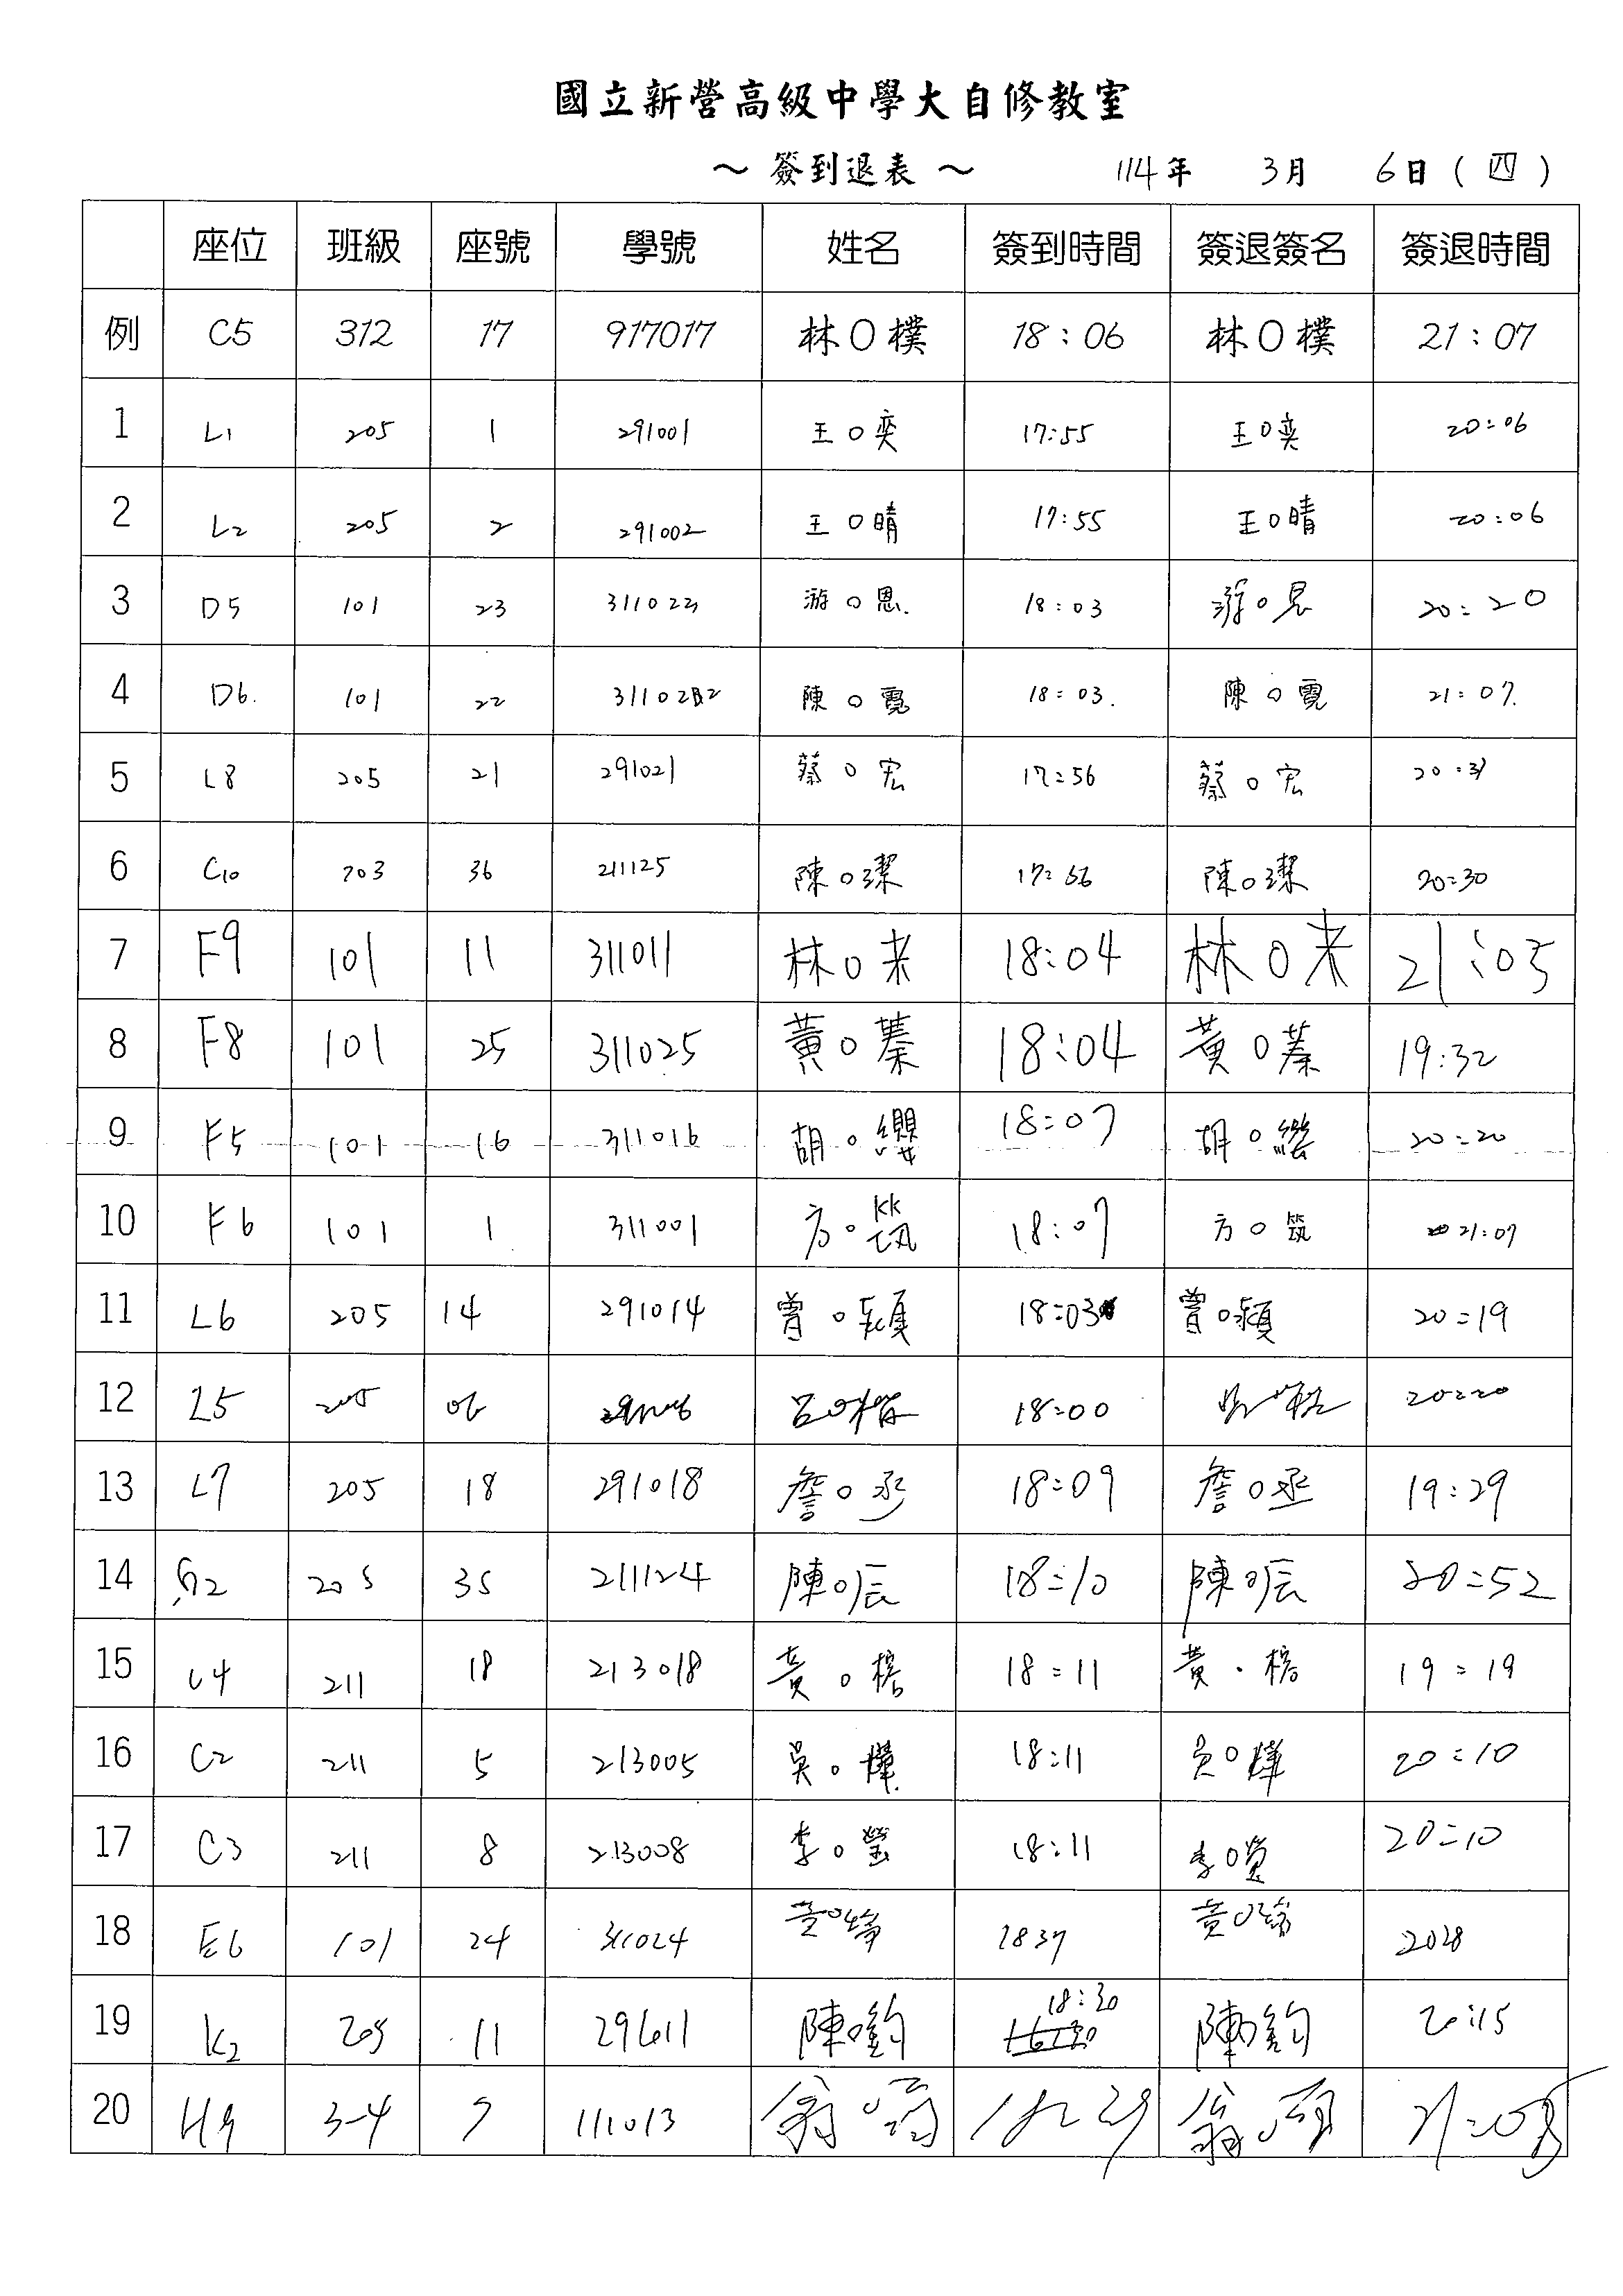 國立新營高級中學大自修教室
～ 簽到退表 ～ 114年 3月 6日 ( 四 )
座位 班級 座號 學號 姓名 簽到時間 簽退簽名 簽退時間
例 C5 312 17 917017 林O樸 18:06 林O樸 21:07
1 L1 205 1 291001 王O奕 17:55 王O奕 20:06
2 L2 205 2 291002 王O晴 17:55 王O晴 20:06
3 D5 101 23 311023 游O恩. 18:03 游O恩 20:20
4 D6. 101 22 陳O霓 18:03. 陳O霓 21:07.
5 L8 205 21 291021 蔡O宏 17:56 蔡O宏
6 C10 203 36 211125 陳O潔 陳O潔 20:30
7 F9 101 11 311011 林O耒 18:04 林O耒 21:05
8 F8 101 25 311025 黃O蓁 18:04 黃O蓁 19:32
9 F5 101 16 311016 胡O纓 18:07 胡O纓 20:20
10 F6 101 1 311001 方O筑 18:07 方O筑 21:07
11 L6 205 14 291014 曾O穎 18:03 曾O穎 20:19
12 L5 205 06 呂O 18:00 20:20
13 L7 205 18 291018 詹O丞 18:09 詹O丞 19:29
14 G2 205 35 211124 陳O辰 18:10 陳O辰 20:52
15 211 18 213018 黃O榕 18:11 黃O榕 19:19
16 C2 211 5 213005 吳O樺 18:11 吳O樺 20:10
17 C3 211 8 213008 李O瑩 18:11 李O瑩 20:10
18 E6 101 24 311024 黃O 1837 黃O 2028
19 K2 205 11 陳O鈞 18:30 陳O鈞 20:15
20 H9 3-4 111013 翁O 翁O